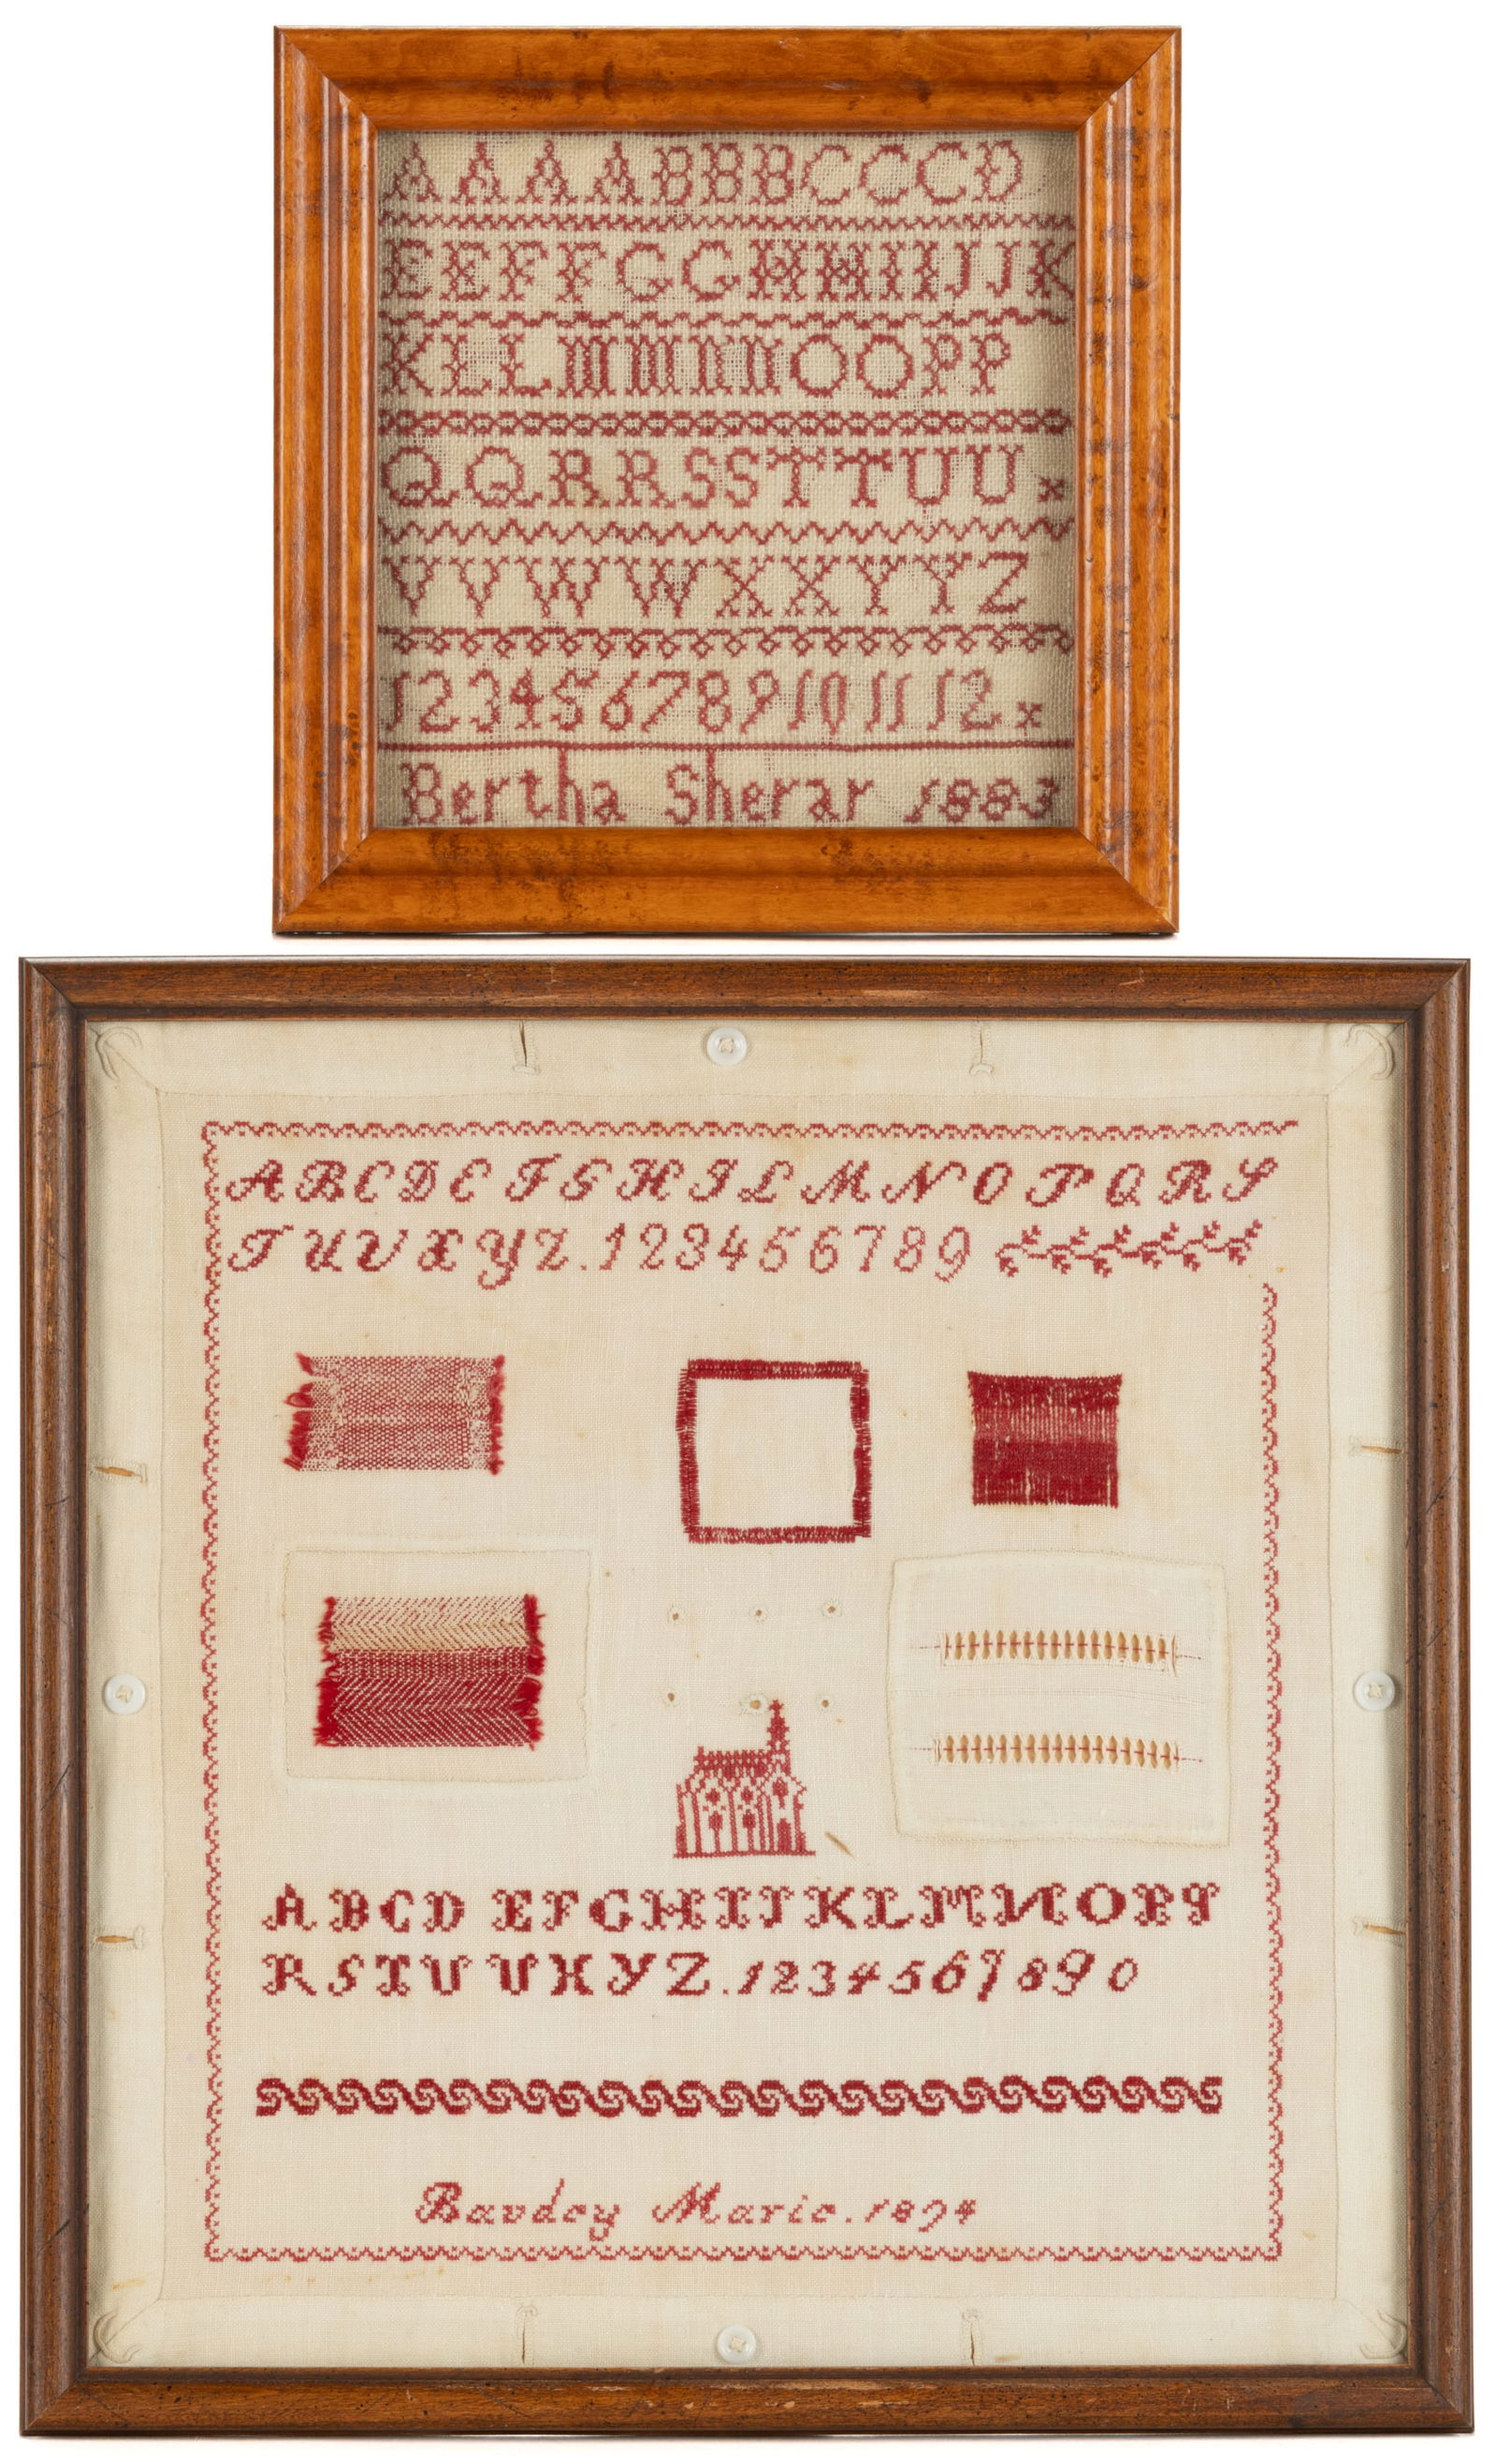 AAAABBBCCCD
EEFFGGHHIIJJK
KLLMMNNOOPP
QQRRSSTTUU
VVWWXXYYZ
123456789101112
Bertha Sherar 1883
ABCDEFGHILMNOPQRS
TUVXYZ.123456789
ABCDEFGHIJKLMNOPQ
RSTUVXYZ.1234567890
Baudey Marie.1894